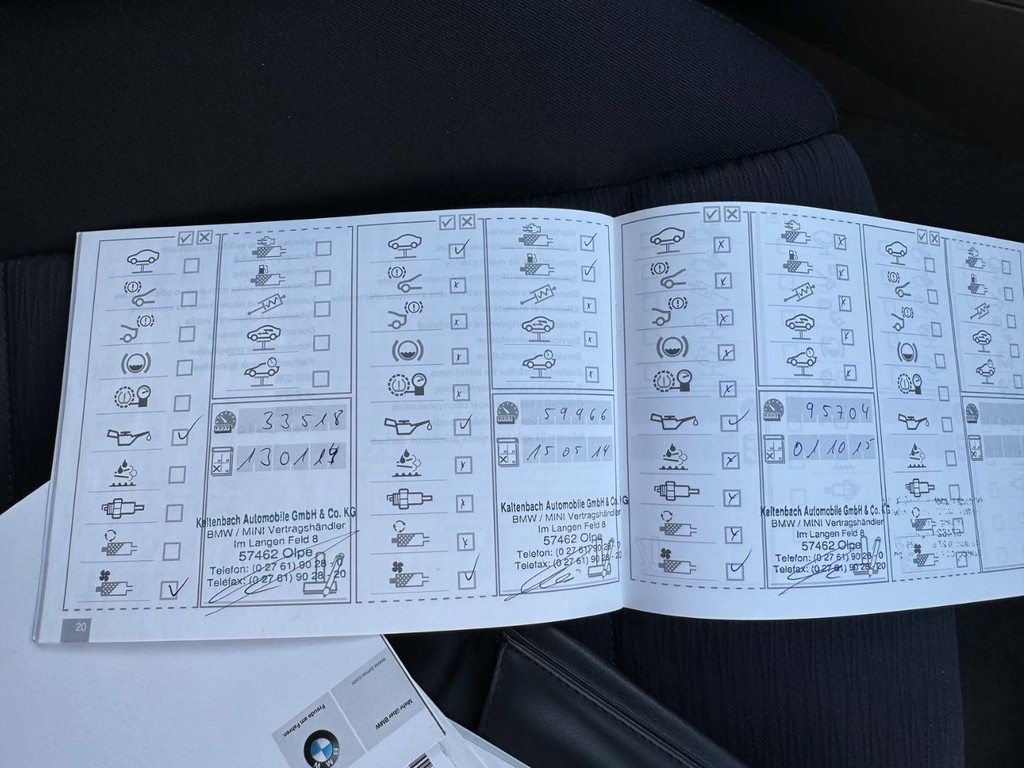 33518
130114
Kaltenbach Automobile GmbH & Co. KG
BMW / MINI Vertragshändler
Im Langen Feld 8
57462 Olpe
Telefon: (0 27 61) 90 28 - 0
Telefax: (0 27 61) 90 28 - 20
59466
150514
Kaltenbach Automobile GmbH & Co. KG
BMW / MINI Vertragshändler
Im Langen Feld 8
57462 Olpe
Telefon: (0 27 61) 90 28 - 0
Telefax: (0 27 61) 90 28 - 20
95704
011015
Kaltenbach Automobile GmbH & Co. KG
BMW / MINI Vertragshändler
Im Langen Feld 8
57462 Olpe
Telefon: (0 27 61) 90 28 - 0
Telefax: (0 27 61) 90 28 - 20
20
Mehr über BMW
www.bmw.com
Freude am Fahren
BMW